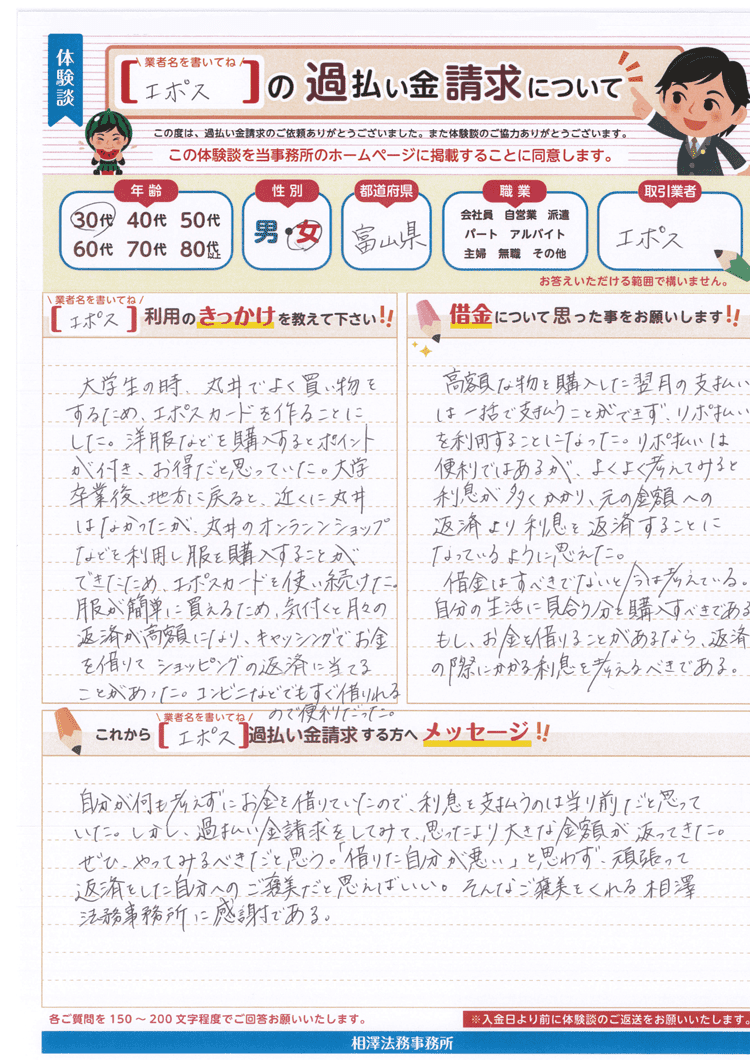 体験談
\ 業者名を書いてね /
【エポス】の 過払い金 請求について
この度は、過払い金請求のご依頼ありがとうございました。また体験談のご協力ありがとうございます。
この体験談を当事務所のホームページに掲載することに同意します。
年齢
30代 40代 50代
60代 70代 80代以上
性別
男・女
都道府県
富山県
職業
会社員 自営業 派遣
パート アルバイト
主婦 無職 その他
取引業者
エポス
お答えいただける範囲で構いません。
\ 業者名を書いてね /
【エポス】利用のきっかけを教えて下さい!!
大学生の時、丸井でよく買い物を
するため、エポスカードを作ることに
した。洋服などを購入するとポイント
が付き、お得だと思っていた。大学
卒業後、地方に戻ると、近くに丸井
はなかったが、丸井のオンランンショップ
などを利用し服を購入することが
できたため、エポスカードを使い続けた。
服が簡単に買えるため、気付くと月々の
返済が高額になり、キャッシングでお金
を借りて ショッピングの返済に当てる
ことがあった。コンビニなどでもすぐ借りれる
ので便利だった。
借金について思った事をお願いします!!
高額な物を購入した翌月の支払い
は一括で支払うことができず、リボ払い
を利用することになった。リボ払いは
便利ではあるが、よくよく考えてみると
利息が多くかかり、元の金額への
返済より利息を返済することに
なっているように思えた。
借金はすべきでないと今は考えている。
自分の生活に見合う分を購入すべきである
もし、お金を借りることがあるなら、返済
の際にかかる利息を考えるべきである。
\ 業者名を書いてね /
これから【エポス】過払い金請求する方へ メッセージ!!
自分が何も考えずにお金を借りていたので、利息を支払うのは当り前だと思って
いた。しかし、過払い金請求をしてみて、思ったより大きな金額が返ってきた。
ぜひ、やってみるべきだと思う。「借りた自分が悪い」と思わず、頑張って
返済をした自分へのご褒美だと思えばいい。そんなご褒美をくれる相澤
法務事務所に感謝である。
各ご質問を 150～200 文字程度でご回答お願いいたします。
※入金日より前に体験談のご返送をお願いいたします。
相澤法務事務所